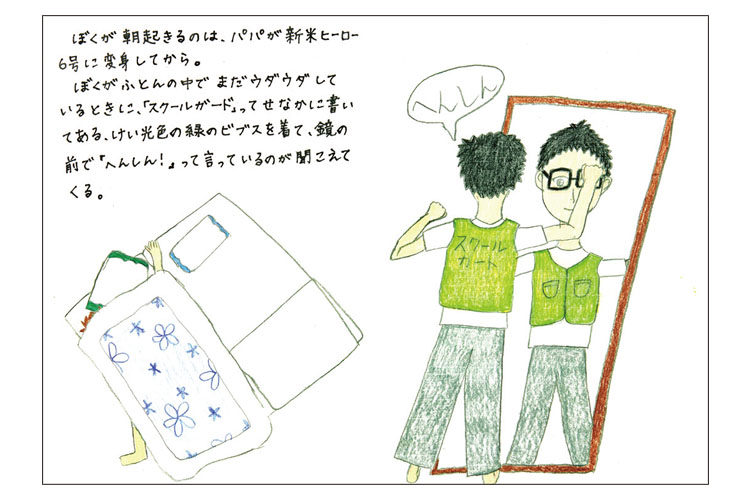 ぼくが朝起きるのは、パパが新米ヒーロー
6号に変身してから。
ぼくがふとんの中でまだウダウダして
いるときに、「スクールガード」ってせなかに書い
てある、けい光色の緑のビブスを着て、鏡の
前で『へんしん!』って言っているのが聞こえて
くる。
へんしん
スクール
ガード